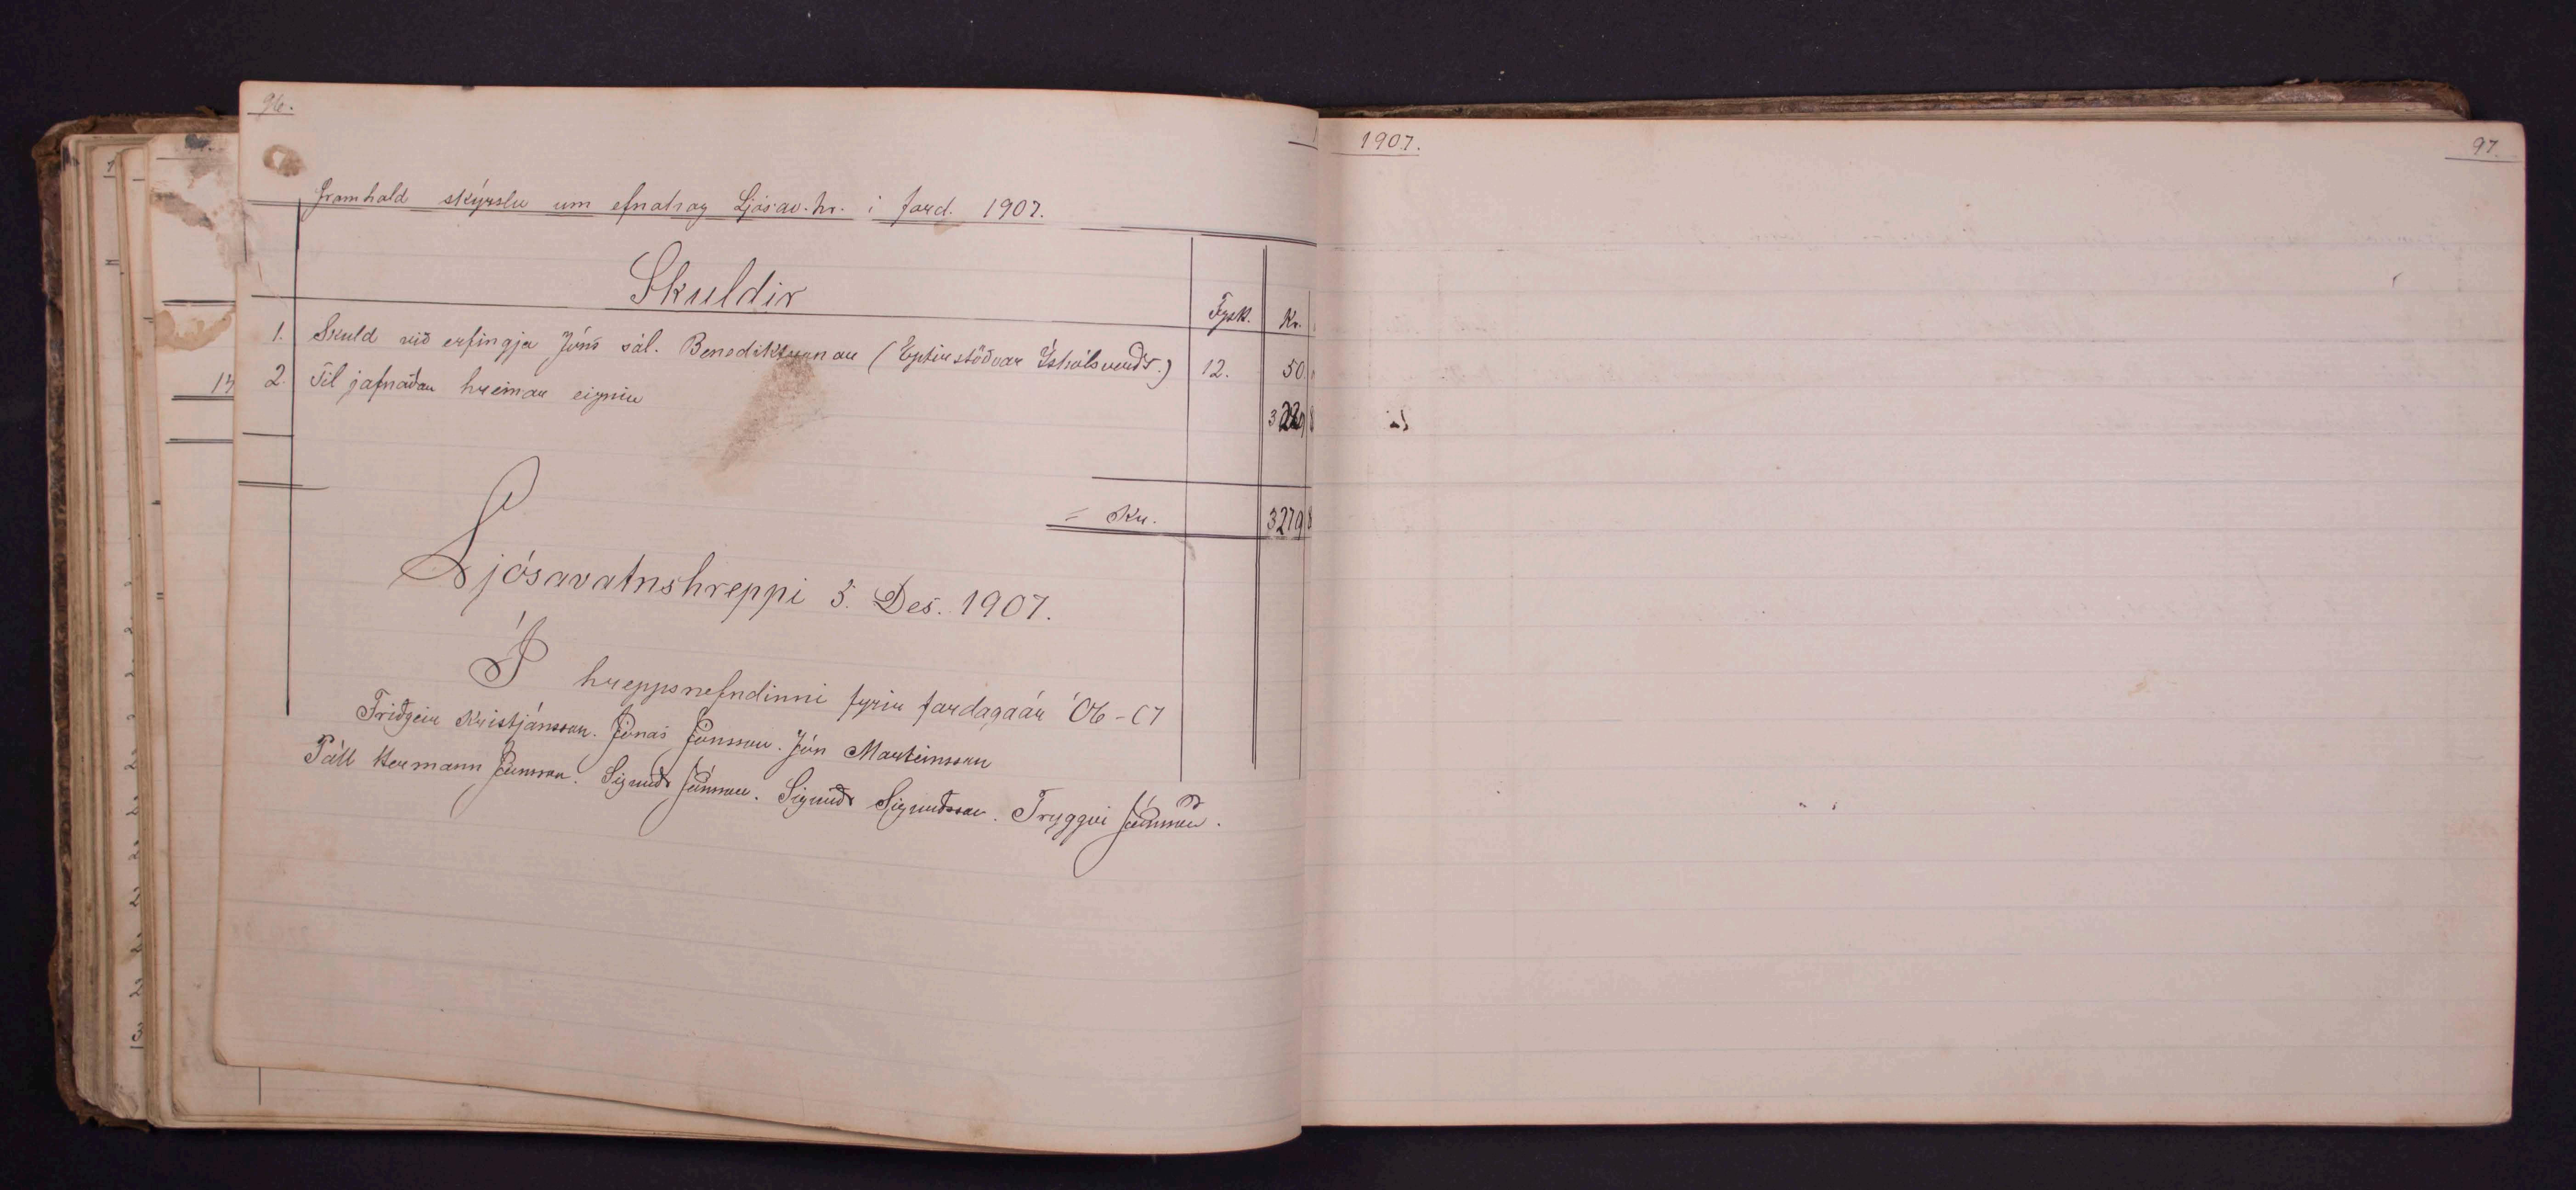 96.
Framhald skýrslu um efnahag Ljósav.hr. í fard. 1907.
Skuldir
Fylsk. Kr.
1. Skuld við erfingja Jóns sál. Benediktssonar (Eptirstöðvar Íshólsverðs.) 12. 50.
2. Til jafnaðar hreinar eignir 3229 8
= Kr. 3279 8
Ljósavatnshreppi 5. Des. 1907.
Í hreppsnefndinni fyrir fardagaár '06-07
Friðgeir Kristjánsson. Jónas Jónsson. Jón Marteinsson
Páll Hermann Jónsson. Sigurðr Jónsson. Sigurðr Sigurðsson. Tryggvi Jónsson.
1907.
97.